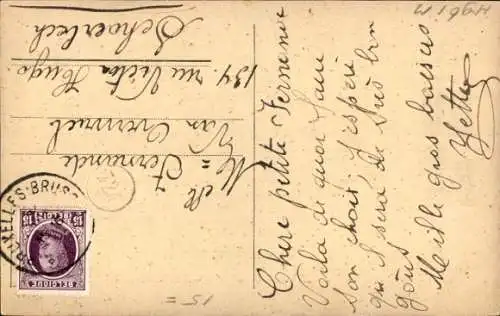 Chère petite Fernande
Voilà de quoi faire
son choix, j'espère
qu'il sera de bon
goût
Meille gros baisers
Yette
Melle Fernande
Van
134 rue Victor Hugo
Schaerbeek
BRUXELLES-BRUSSEL
BELGIQUE
15
15 =